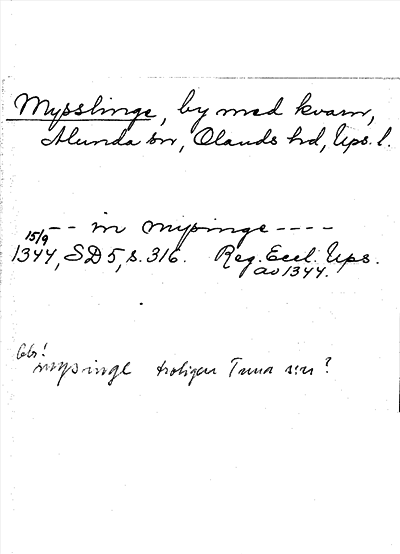 Mysslinge, by med kvarn,
Alunda sn, Olands hd, Ups. l.
-- in mysinge ----
15/9
1344, SD 5, s. 316. Reg. Eccl. Ups.
av 1344.
Obs!
mysinge troligen Tuna sn?